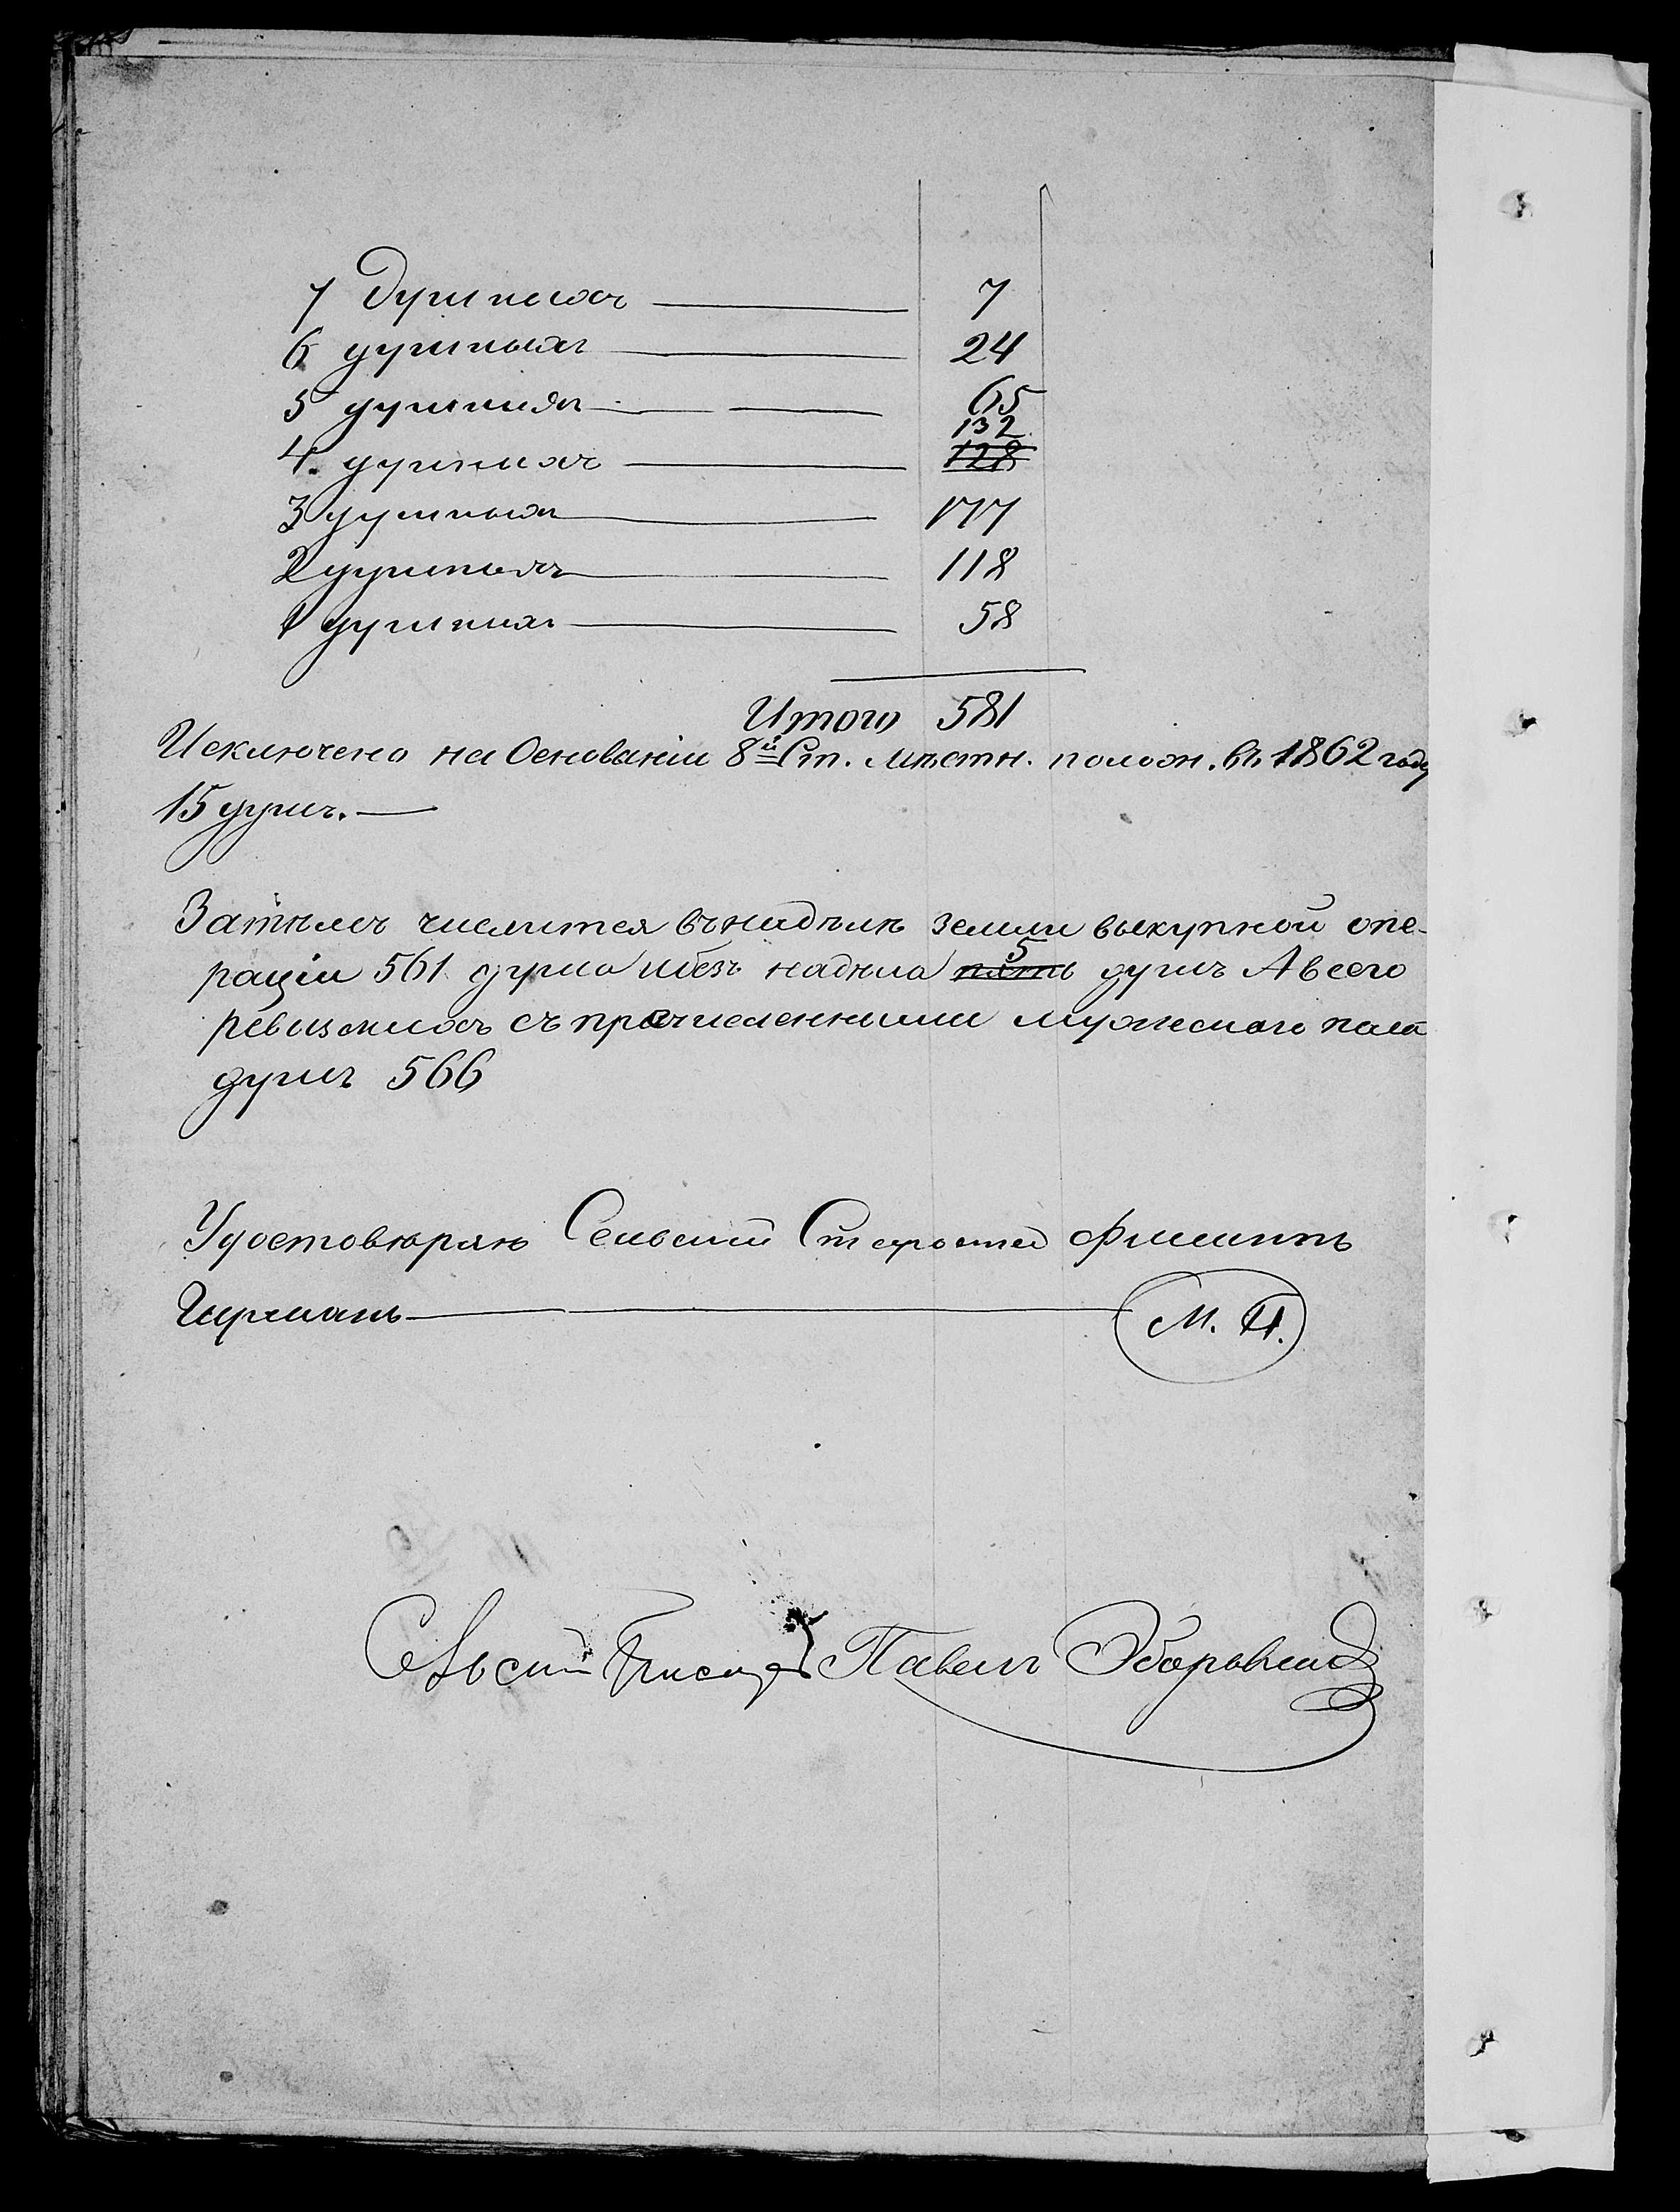 7 душныхъ — 7
6 душныхъ — 24
5 душныхъ — 65
132
4. душныхъ — 128
3 душныхъ — 177
2 душныхъ — 118
1 душныхъ — 58
Итого 581
Исключено на Основаніи 8й Ст. Мѣстн. полож. въ 1862 году
15 душъ. —
Затѣмъ числится въ надѣлѣ земли выкупной опе-
раціи 561 душа и безъ надѣла пять 5 душъ А всего
ревизскихъ съ причисленными мужескаго пола
душъ 566
Удостовѣряю Сельскій Староста Филиппъ
М. П.
Сельскій Писарь Павелъ